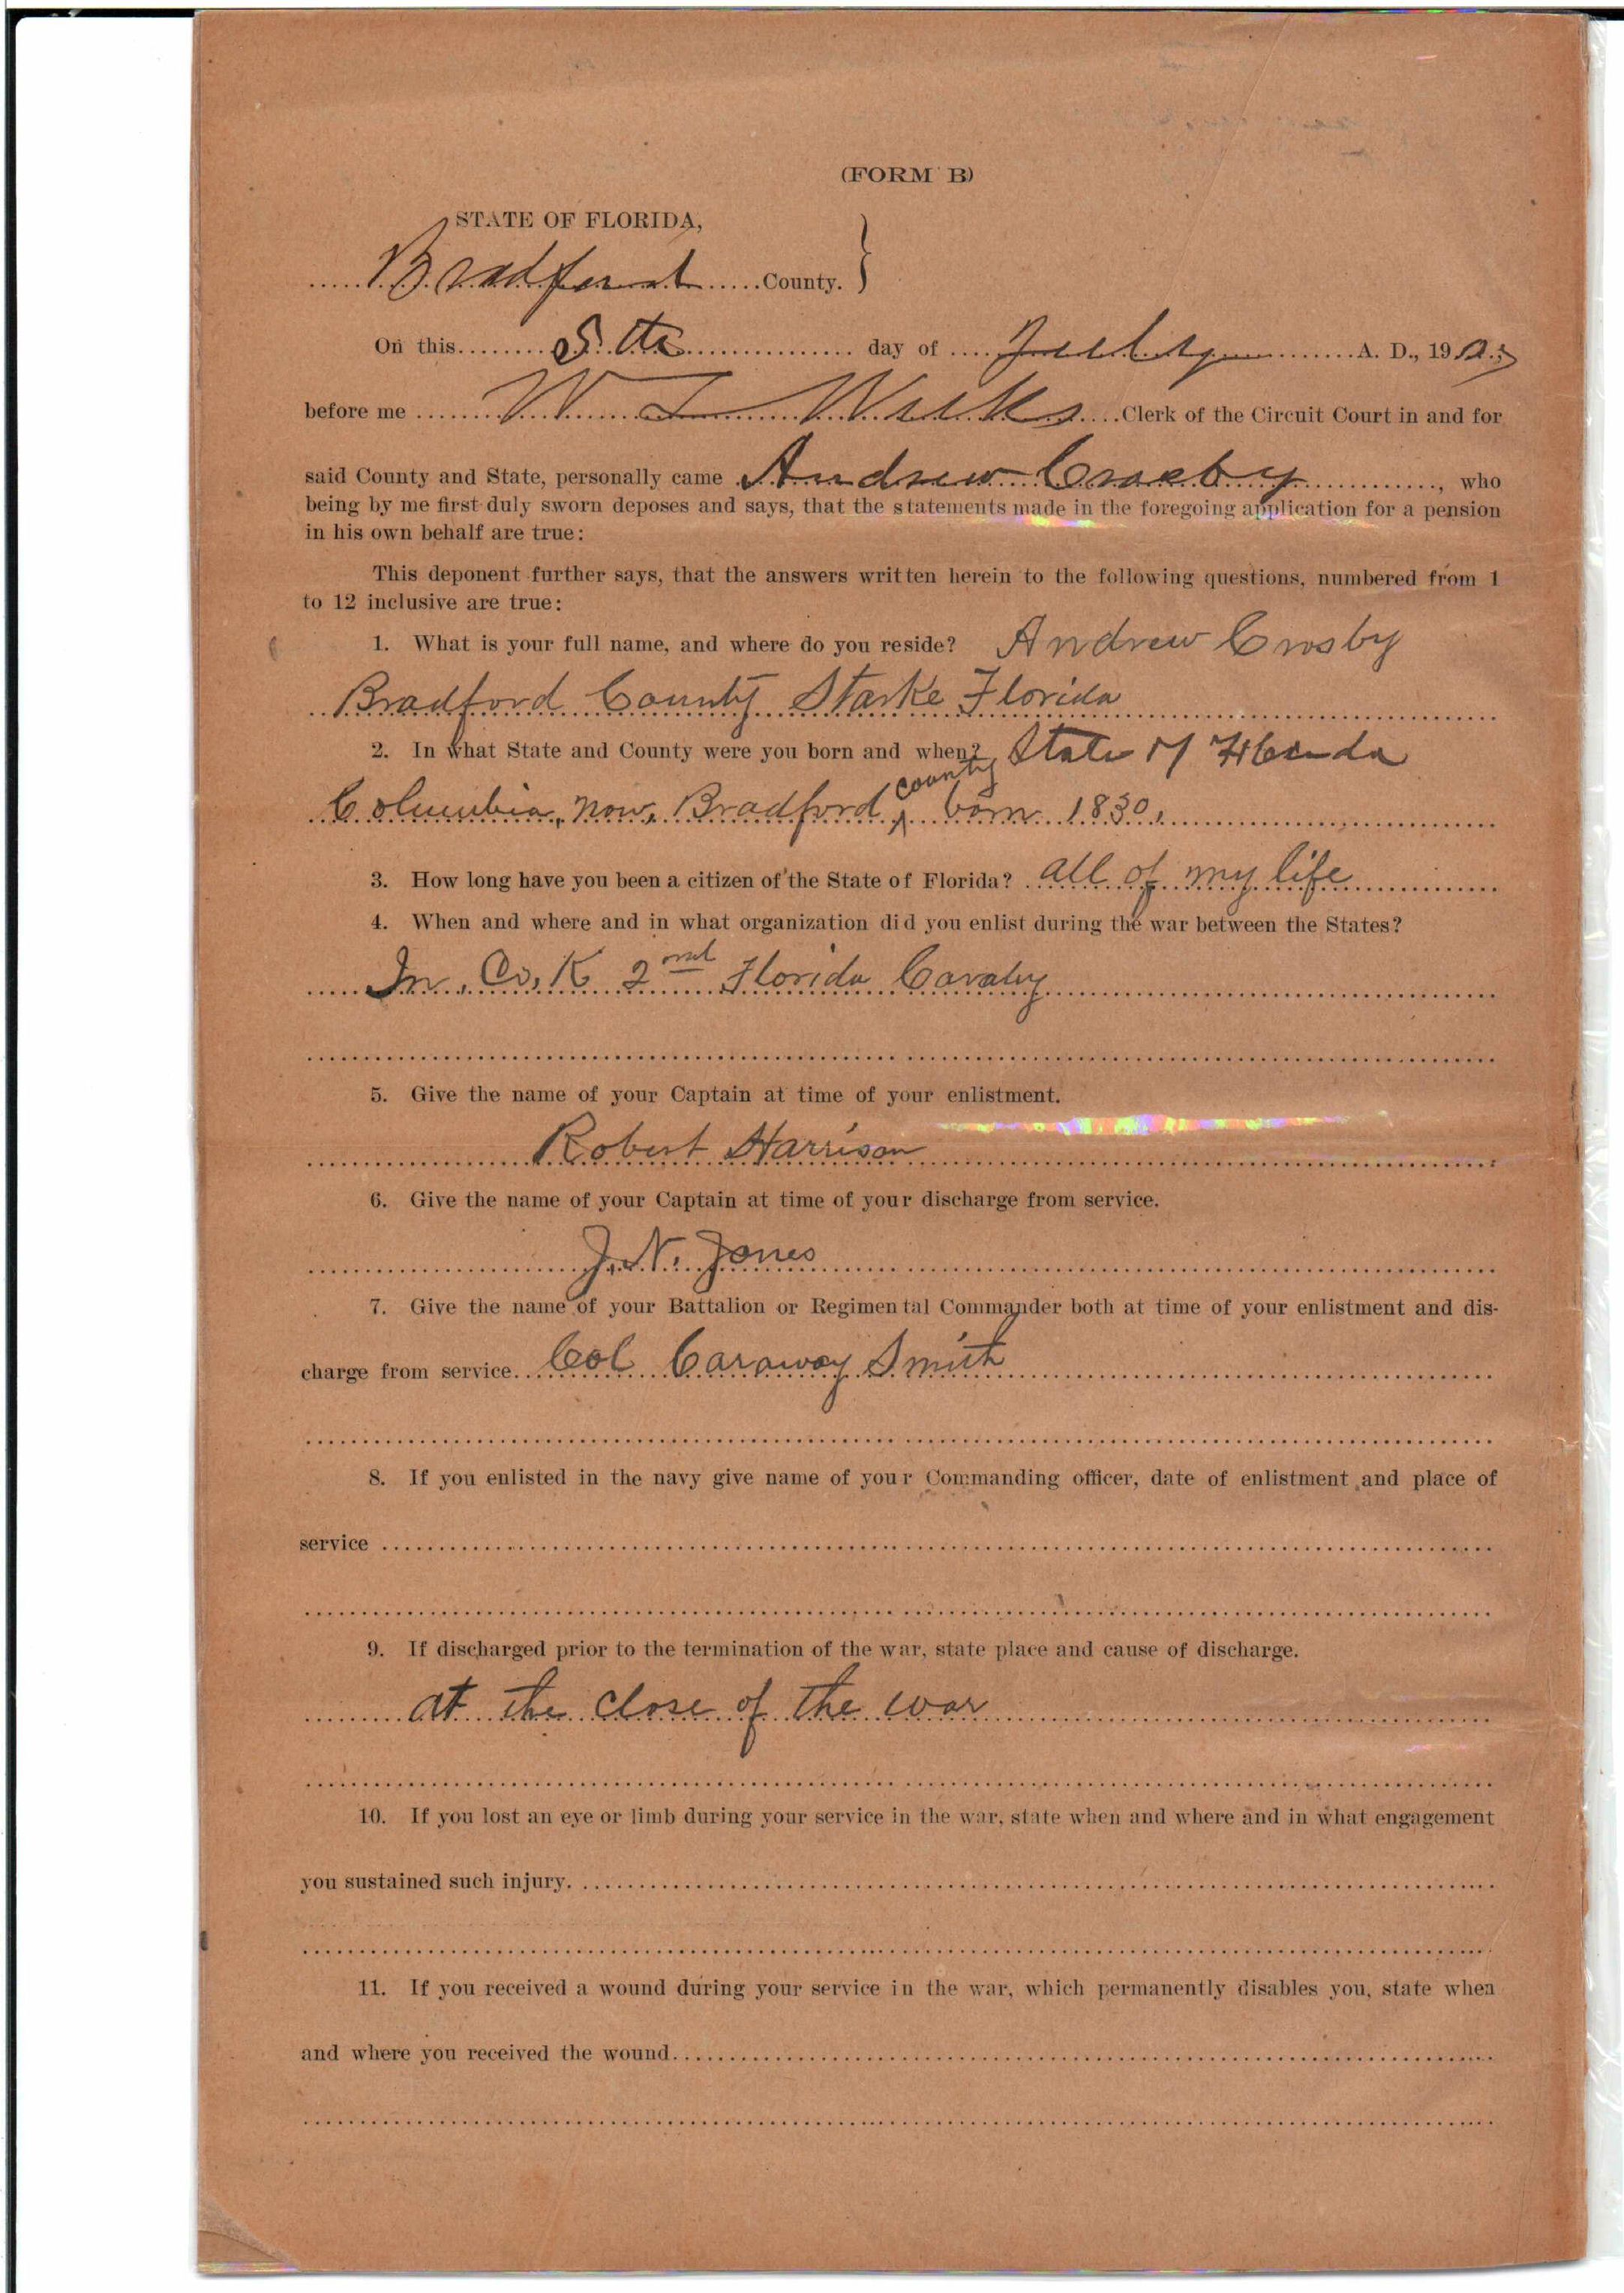 (FORM B)
STATE OF FLORIDA,
Bradford County. }
On this 5th day of July A. D., 190
before me W Clerk of the Circuit Court in and for
said County and State, personally came Andrew Crosby, who
being by me first duly sworn deposes and says, that the statements made in the foregoing application for a pension
in his own behalf are true:
This deponent further says, that the answers written herein to the following questions, numbered from 1
to 12 inclusive are true:
1. What is your full name, and where do you reside? Andrew Crosby
Bradford County Starke Florida
2. In what State and County were you born and when? State of Florida
Columbia, now, Bradford county born 1830,
3. How long have you been a citizen of the State of Florida? all of my life
4. When and where and in what organization did you enlist during the war between the States?
In, Co, K 2nd Florida Cavalry
5. Give the name of your Captain at time of your enlistment.
Robert Harrison
6. Give the name of your Captain at time of your discharge from service.
J. N. Jones
7. Give the name of your Battalion or Regimental Commander both at time of your enlistment and dis-
charge from service. Col Caraway Smith
8. If you enlisted in the navy give name of your Commanding officer, date of enlistment and place of
service
9. If discharged prior to the termination of the war, state place and cause of discharge.
at the close of the war
10. If you lost an eye or limb during your service in the war, state when and where and in what engagement
you sustained such injury.
11. If you received a wound during your service in the war, which permanently disables you, state when
and where you received the wound.